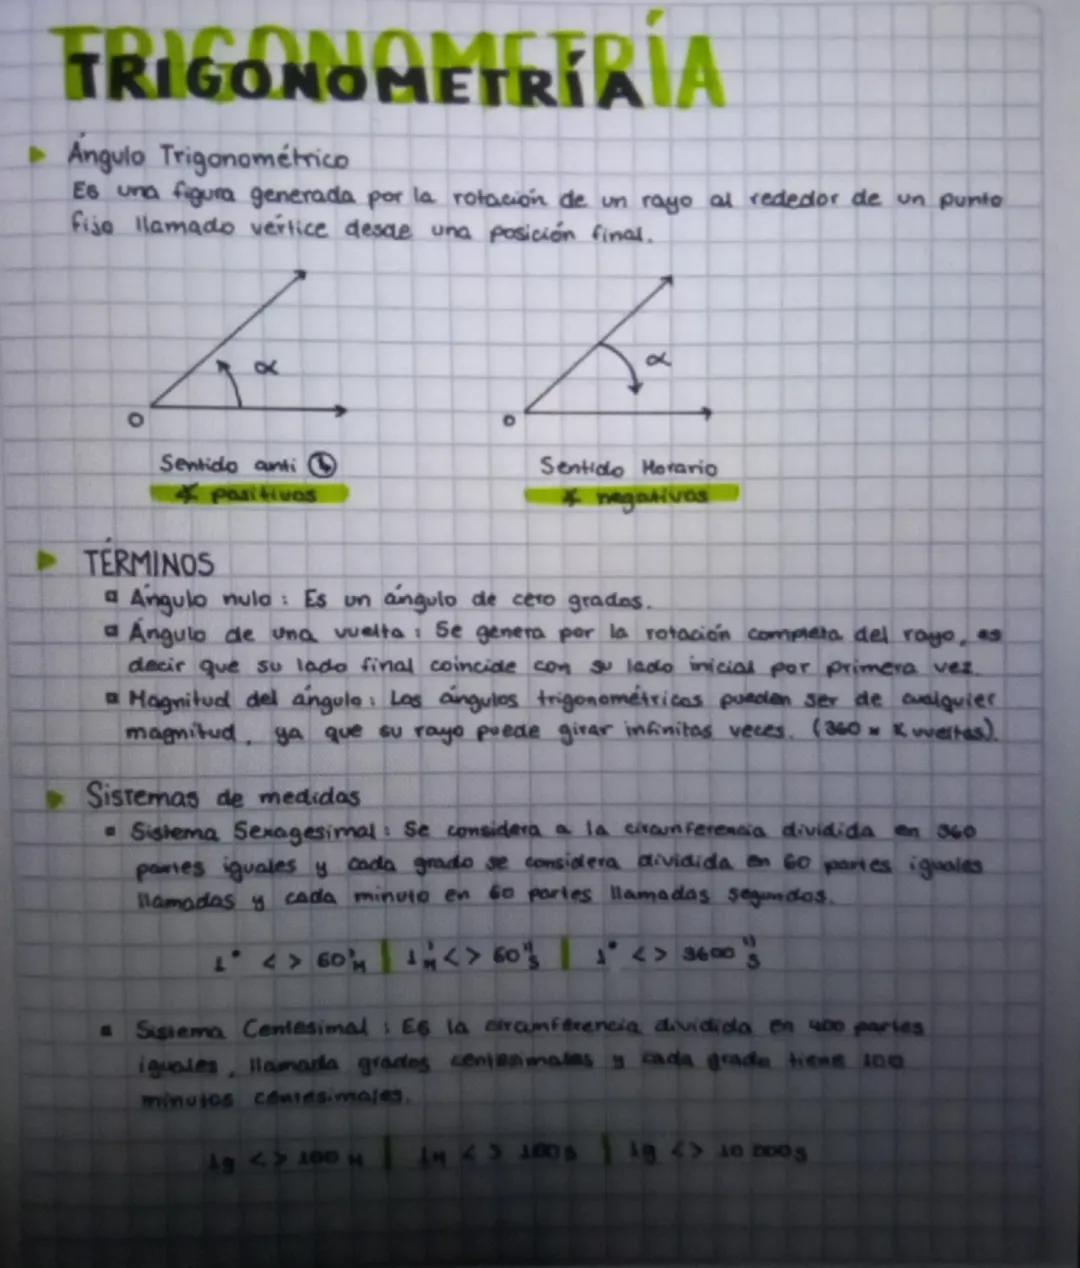 TRIGONOMETRÍA
TRIGONOMETRÍA
Ángulo Trigonométrico
Es una figura generada por la rotación de un rayo al rededor de un punto
fijo llamado vértice desde una posición final.
α
α
O
O
Sentido anti
Sentido Horario
∡ positivos
∡ negativos
TÉRMINOS
Ángulo nulo : Es un ángulo de cero grados.
Ángulo de una vuelta : Se genera por la rotación completa del rayo, es
decir que su lado final coincide con su lado inicial por primera vez.
Magnitud del ángulo : Los ángulos trigonométricos pueden ser de cualquier
magnitud, ya que su rayo puede girar infinitas veces. (360 x vueltas).
Sistemas de medidas
Sistema Sexagesimal : Se considera a la circunferencia dividida en 360
partes iguales y cada grado se considera dividida en 60 partes iguales
llamadas y cada minuto en 60 partes llamadas segundos.
1° <> 60'M | 1'M <> 60"S | 1° <> 3600"S
Sistema Centesimal : Es la circunferencia dividida en 400 partes
iguales, llamada grados centesimales y cada grado tiene 100
minutos centesimales.
1g <> 100 M | 1M <> 100 S | 1g <> 10 000 S